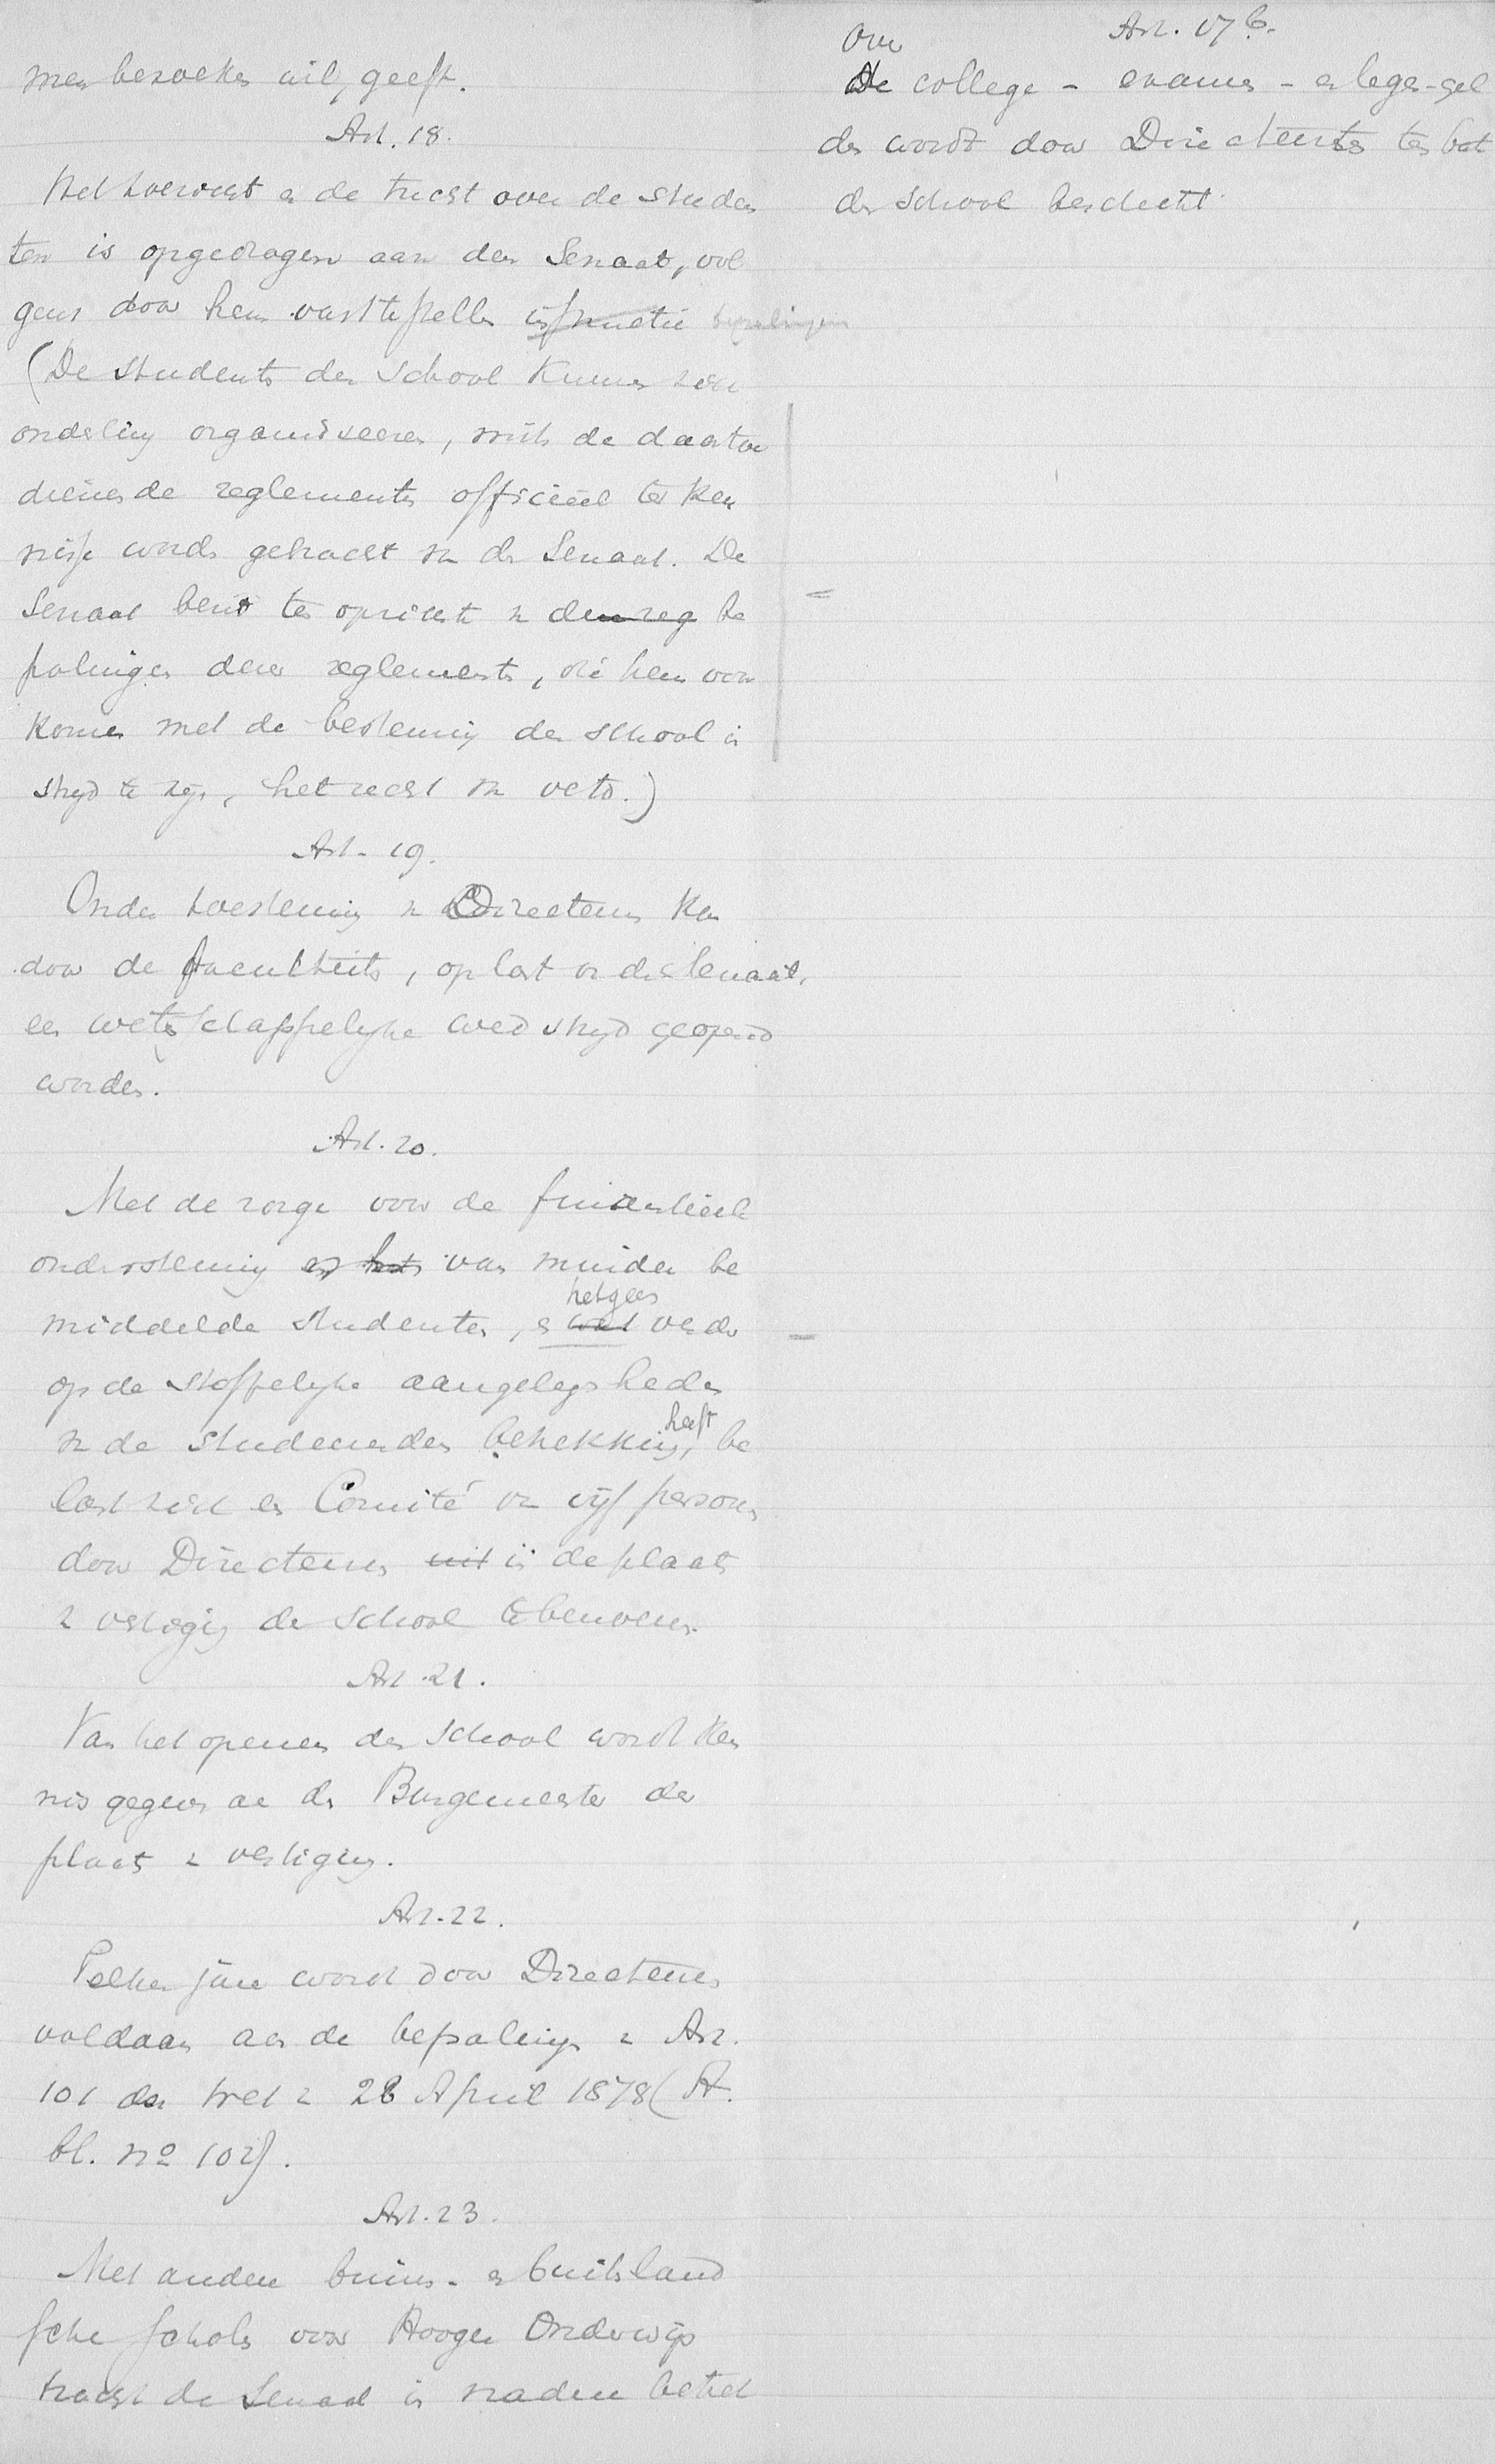 men bezoeken wil, geeft.
Art. 18.
Het toezicht en de tucht over de studen
ten is opgedragen aan den Senaat, vol
gens door hem vast te stellen instructie bepalingen
(De studenten der school kunnen zich
onderling organiseeren, mits de daartoe
dienende reglementen officieel ter ken
nisse worde gebracht van den Senaat. De
Senaat bezit ten opzichte van den reg be
palingen dezer reglementen, die hem voor
komen met de bestemming der school in
strijd te zijn, het recht van veto.)
Art. 19.
Onder toestemming van Directeuren kan
door de faculteiten, op last van den Senaat,
een wetenschappelijke wedstrijd geopend
worden.
Art. 20.
Met de zorge voor de finantieele
ondersteuning en het van minder be
middelde studenten, en wat hetgeen verder
op de stoffelijke aangelegenheden
van de studeerenden betrekking heeft, be
last zich een Comité van vijf personen
door Directeuren uit in de plaats
van vestiging der school te benoemen.
Art. 21.
Van het openen der school wordt ken
nis gegeven aan den Burgemeester der
plaats van vestiging.
Art. 22.
Telken jare wordt door Directeuren
voldaan aan de bepalingen van Art.
101 der wet van 28 April 1878 (St.
bl. no 102).
Art. 23.
Met andere binnen- en buitenland
sche scholen voor Hooger Onderwijs
tracht de Senaat in nadere betrek
Art. 17b.
Over
de college- examen- en leges-gel
den wordt door Directeuren ten bate
der school beschikt.